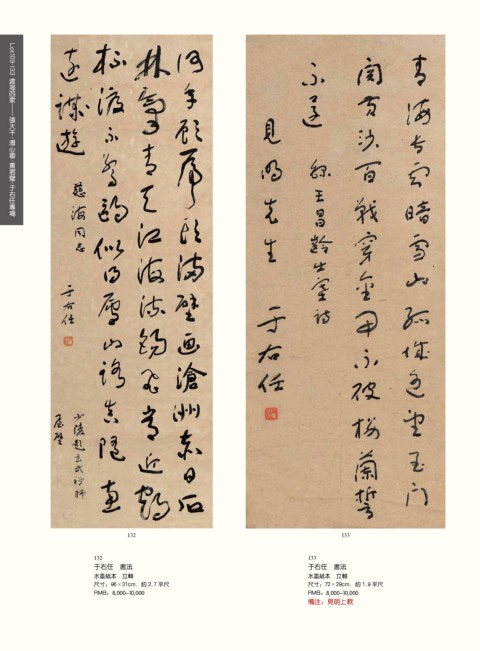 Lot109-133 渡海四家——張大千·溥心畬·黃君璧·于右任專場
何年顧虎頭滿壁画滄洲赤日石
林氣青天江海流錫飛常近鶴
杯渡不驚鷗似得廬山路真隨惠
遠遊
慈海同志
于右任
少陵題玄武禪師
屋壁
青海長雲暗雪山孤城遥望玉門
関黄沙百戰穿金甲不破樓蘭誓
不還 録王昌齡出塞詩
見明先生 于右任
132
133
132
于右任 書法
水墨紙本 立軸
尺寸：96×31cm. 約2.7平尺
RMB: 8,000-10,000
133
于右任 書法
水墨紙本 立軸
尺寸：72×29cm. 約1.9平尺
RMB: 8,000-10,000
備注：見明上款